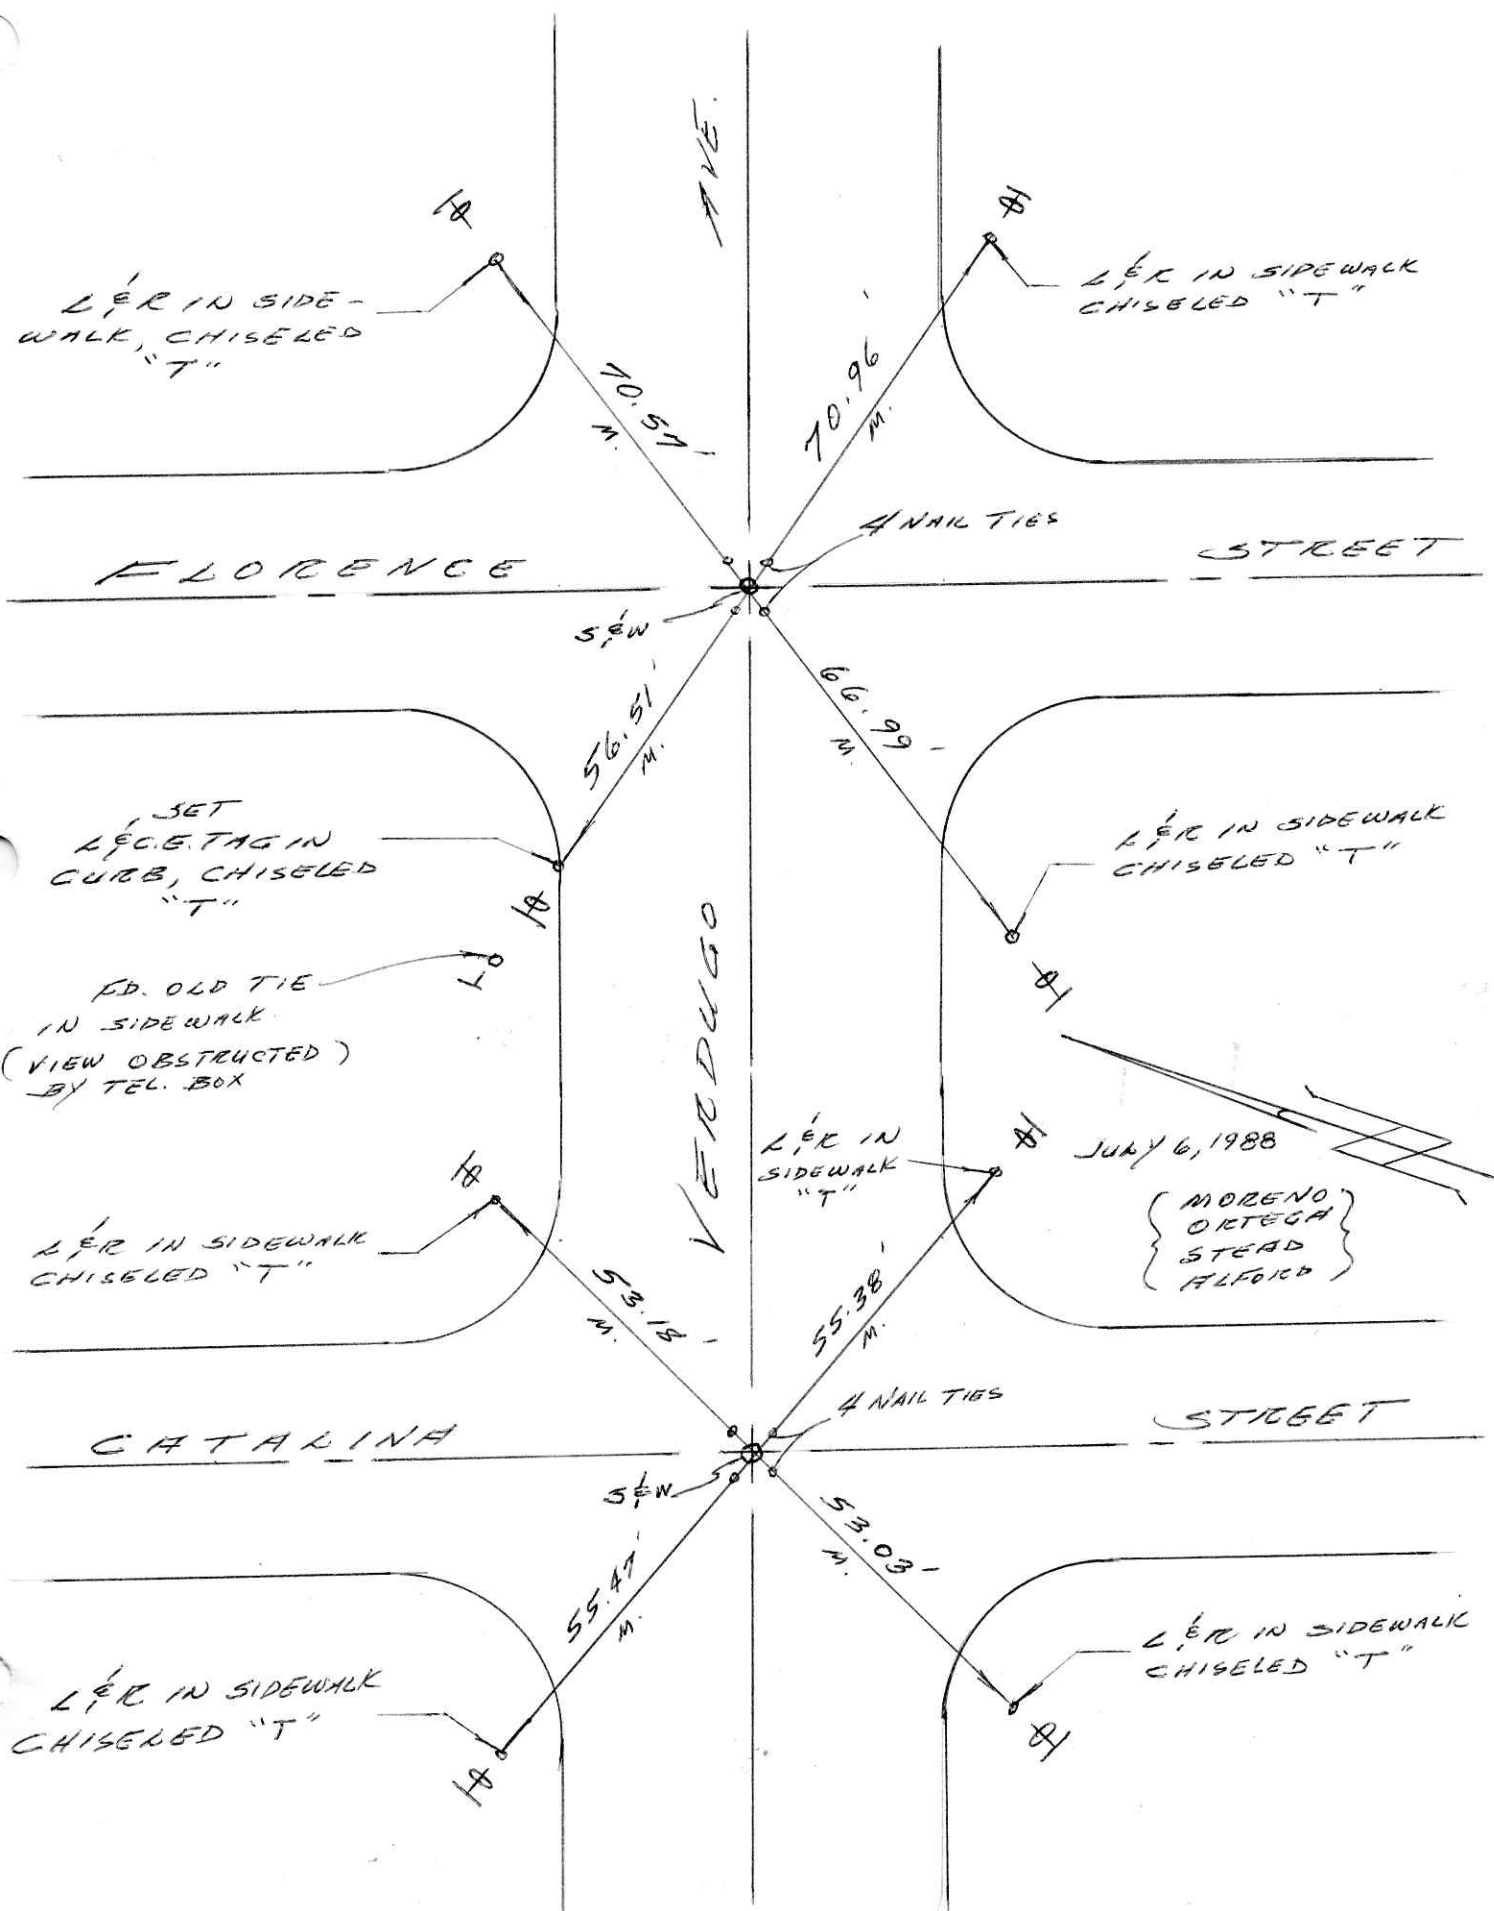 AVE.
L & R IN SIDE-
WALK, CHISELED
"T"
L & R IN SIDEWALK
CHISELED "T"
70.57'
M.
70.96'
M.
4 NAIL TIES
FLORENCE STREET
S & W
56.51'
M.
66.99'
M.
SET
L & C.E. TAG IN
CURB, CHISELED
"T"
L & R IN SIDEWALK
CHISELED "T"
FD. OLD TIE
IN SIDEWALK
(VIEW OBSTRUCTED)
BY TEL. BOX
VERDUGO
L & R IN
SIDEWALK
"T"
JULY 6, 1988
MORENO
ORTEGA
STEAD
ALFORD
L & R IN SIDEWALK
CHISELED "T"
53.18'
M.
55.38'
M.
4 NAIL TIES
CATALINA STREET
S & W
55.47'
M.
53.03'
M.
L & R IN SIDEWALK
CHISELED "T"
L & R IN SIDEWALK
CHISELED "T"